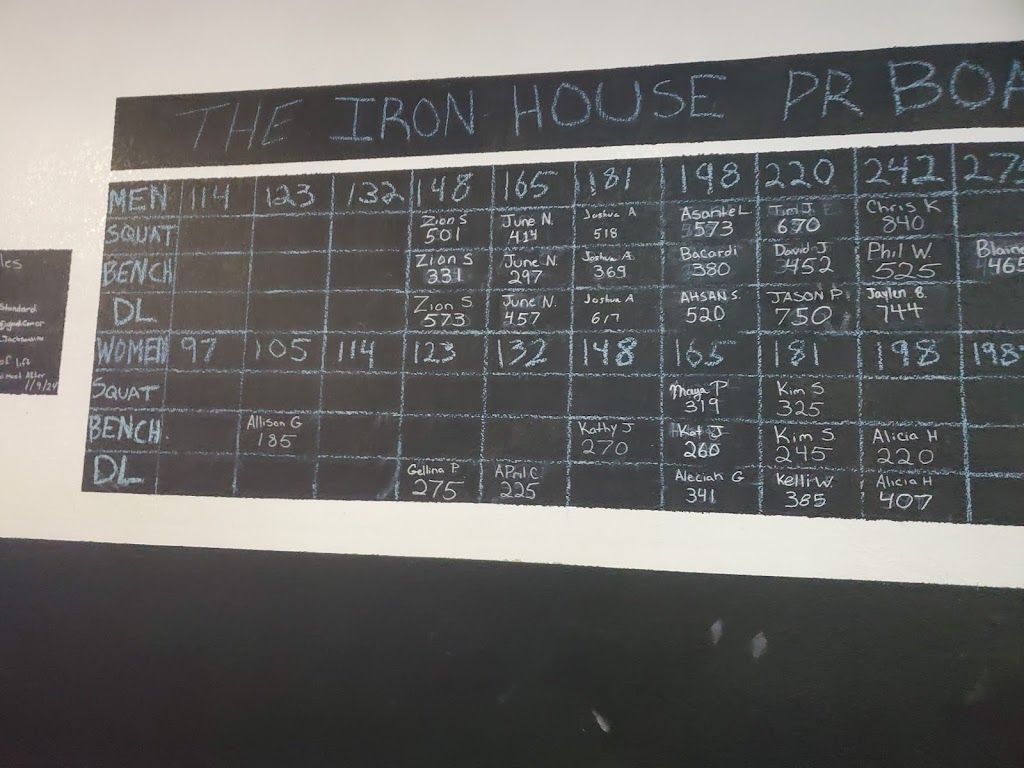 THE IRON HOUSE PR BOA
MEN 114 123 132 148 165 181 198 220 242 275
SQUAT Zion S 501 June N. 414 Joshua A 518 Asante L 573 Tim J. 670 Chris K 840
BENCH Zion S 331 June N. 297 Joshua A 369 Bacardi 380 David J 452 Phil W. 525 Blaine 465
DL Zion S 573 June N. 457 Joshua A 617 AHSAN S. 520 JASON P. 750 Jaylen B. 744
WOMEN 97 105 114 123 132 148 165 181 198 198
SQUAT Maya P 319 Kim S 325
BENCH Allison G 185 Kathy J 270 Kat J 260 Kim S 245 Alicia H 220
DL Gellina P 275 APril C 225 Aleciah G 341 Kelli W. 385 Alicia H 407
les
Standard
of lift
11/9/24